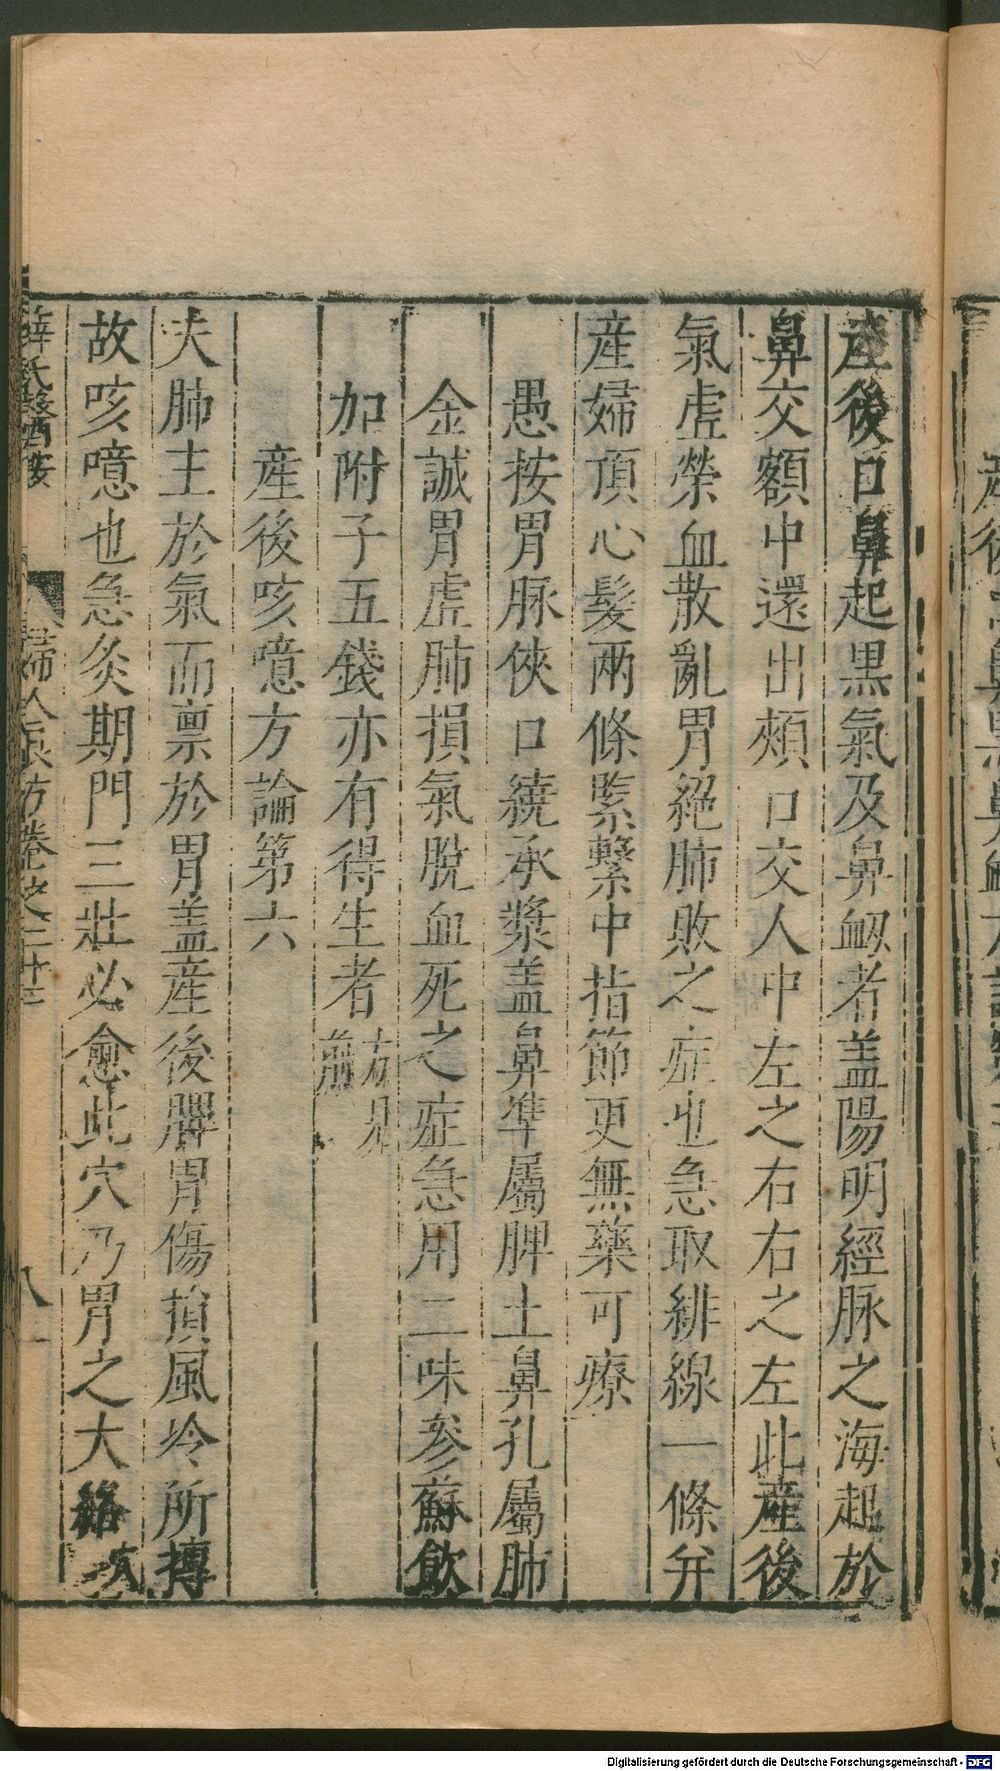 產後口鼻起黑氣及鼻衂者盖陽明經脉之海起於
鼻交額中還出頰口交人中左之右右之左此產後
氣虛榮血散亂胃絕肺敗之症也急取緋線一條并
產婦頂心髮兩條緊繫中指節更無藥可療
愚按胃脉俠口繞承漿盖鼻準屬脾土鼻孔屬肺
金誠胃虛肺損氣脫血死之症急用二味參蘇飲
加附子五錢亦有得生者
方見
前
產後咳噫方論第六
夫肺主於氣而禀於胃盖產後脾胃傷損風冷所搏
故咳噫也急灸期門三壯必愈此穴乃胃之大絡
薛氏醫按
婦人良方卷之二十三
八
Digitalisierung gefördert durch die Deutsche Forschungsgemeinschaft - DFG